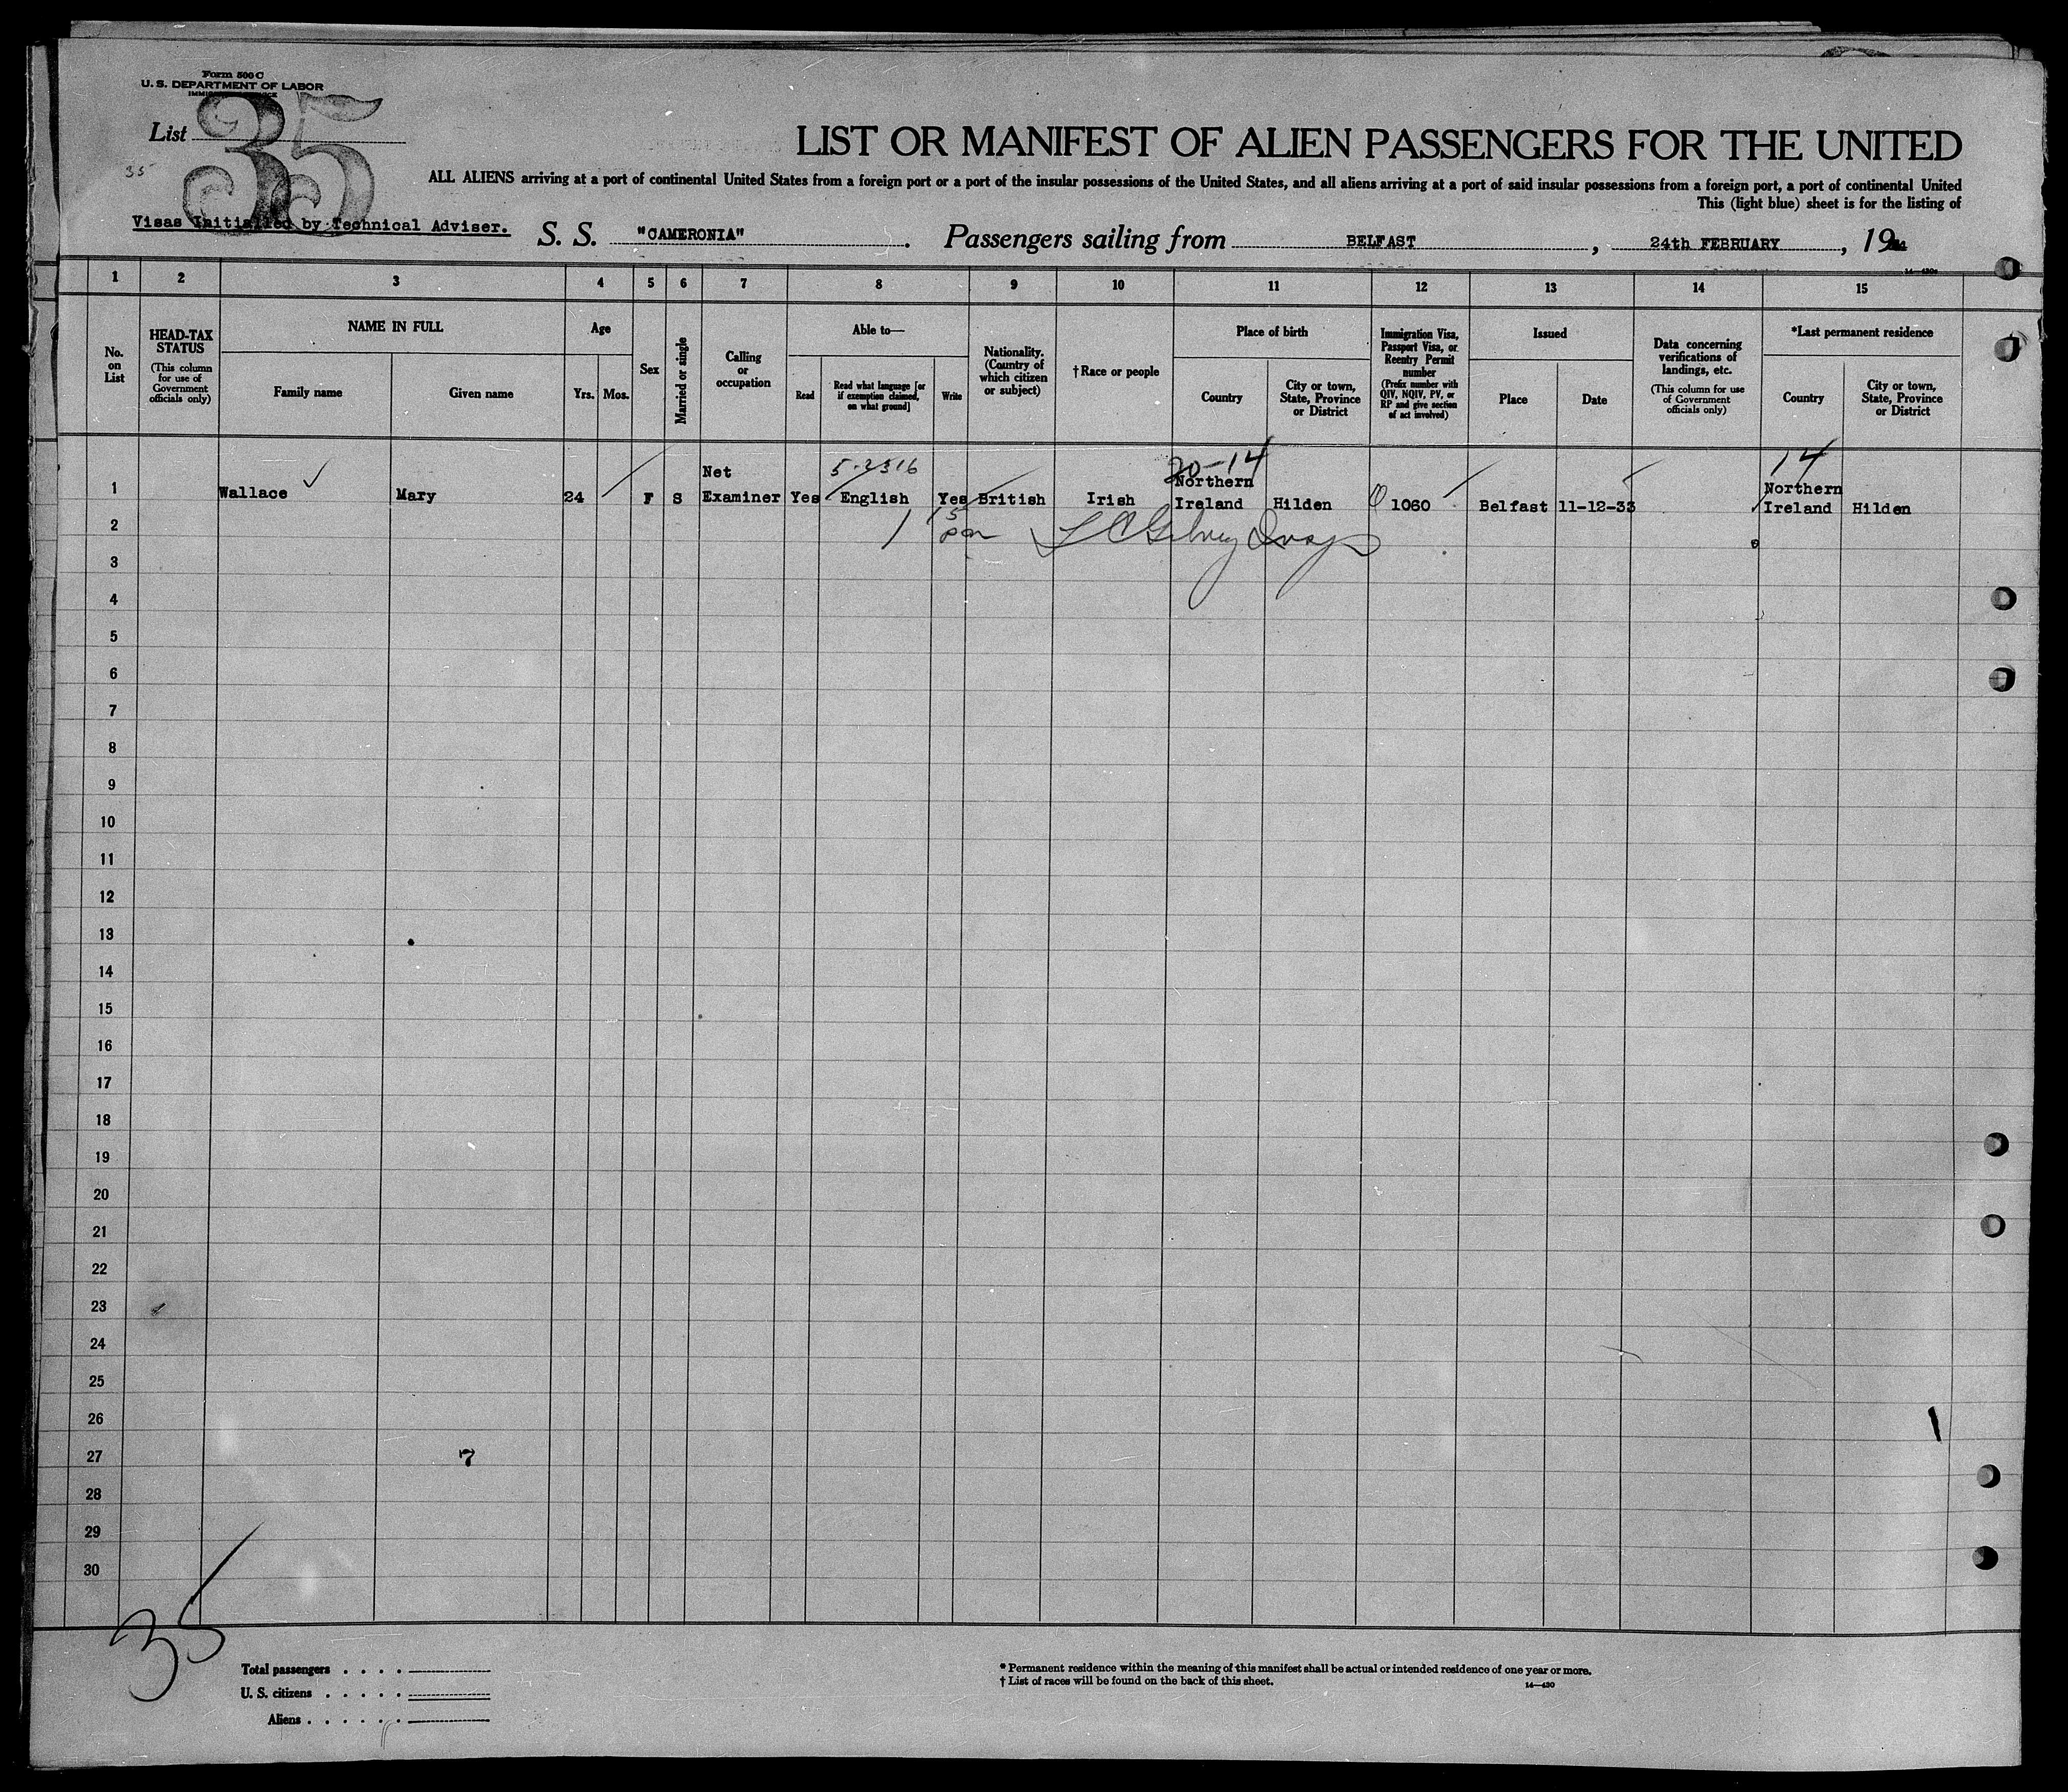 Form 500 C
U. S. DEPARTMENT OF LABOR
List 35
35
LIST OR MANIFEST OF ALIEN PASSENGERS FOR THE UNITED
ALL ALIENS arriving at a port of continental United States from a foreign port or a port of the insular possessions of the United States, and all aliens arriving at a port of said insular possessions from a foreign port, a port of continental United
This (light blue) sheet is for the listing of
Visas Initialled by Technical Adviser.
S. S. "CAMERONIA". Passengers sailing from BELFAST, 24th FEBRUARY, 19
1 2 3 4 5 6 7 8 9 10 11 12 13 14 15
No. on List
HEAD-TAX STATUS
(This column for use of Government officials only)
NAME IN FULL
Family name
Given name
Age
Yrs. Mos.
Sex
Married or single
Calling or occupation
Able to—
Read
Read what language [or if exemption claimed, on what ground]
Write
Nationality. (Country of which citizen or subject)
†Race or people
Place of birth
Country
City or town, State, Province or District
Immigration Visa, Passport Visa, or Reentry Permit number
(Prefix number with QIV, NQIV, PV, or RP and give section of act involved)
Issued
Place
Date
Data concerning verifications of landings, etc.
(This column for use of Government officials only)
*Last permanent residence
Country
City or town, State, Province or District
20-14
14
1 Wallace Mary 24 F S Net Examiner Yes English Yes British Irish Northern Ireland Hilden 1060 Belfast 11-12-33 Northern Ireland Hilden
2
3
4
5
6
7
8
9
10
11
12
13
14
15
16
17
18
19
20
21
22
23
24
25
26
27 7
28
29
30
35
Total passengers
U. S. citizens
Aliens
* Permanent residence within the meaning of this manifest shall be actual or intended residence of one year or more.
† List of races will be found on the back of this sheet.
14—430